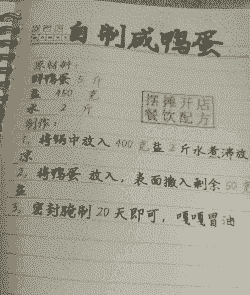 自制咸鸭蛋
原材料:
鲜鸭蛋 5 斤
盐 450 克
水 2 斤
摆摊开店
餐饮配方
制作:
1, 将锅中放入 400 克盐 2 斤水煮沸放
凉
2, 将鸭蛋 放入, 表面撒入剩余 50 克
盐
3, 密封腌制 20 天即可, 嘎嘎冒油